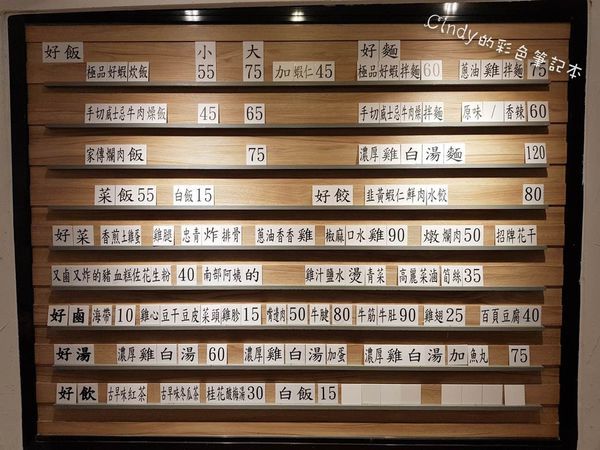 Cindy的彩色筆記本
好飯 小 大 好麵
極品好蝦炊飯 55 75 加蝦仁45 極品好蝦拌麵60 蔥油雞拌麵75
手切威士忌牛肉燥飯 45 65 手切威士忌牛肉燥拌麵 原味/香辣60
家傳爌肉飯 75 濃厚雞白湯麵 120
菜飯55 白飯15 好餃 韭黃蝦仁鮮肉水餃 80
好菜 香煎土雞蛋 雞腿 忠青炸排骨 蔥油香香雞 椒麻口水雞90 燉爌肉50 招牌花干
又鹵又炸的豬血糕佐花生粉 40 南部阿姨的 雞汁鹽水燙青菜 高麗菜滷筍絲35
好鹵 海帶10 雞心豆干豆皮菜頭雞胗15 嘴邊肉50 牛腱80 牛筋牛肚90 雞翅25 百頁豆腐40
好湯 濃厚雞白湯60 濃厚雞白湯加蛋 濃厚雞白湯加魚丸 75
好飲 古早味紅茶 古早味冬瓜茶 桂花酸梅湯30 白飯15